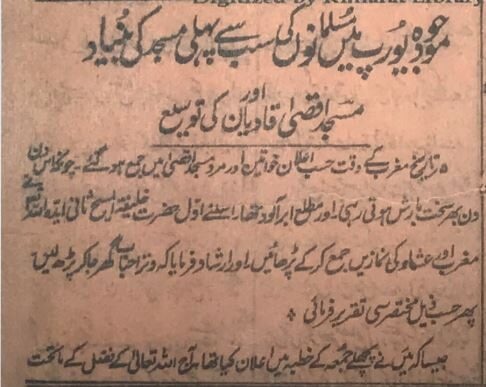 Digitized by Khilafat Library
موجودہ یورپ میں مسلمانوں کی سب سے پہلی مسجد کی بنیاد
اور
مسجد اقصیٰ قادیان کی توسیع
۵ تاریخ مغرب کے وقت حسب اعلان خواتین اور مرد مسجد اقصیٰ میں جمع ہو گئے۔ چونکہ اس دن
دن بھر سخت بارش ہوتی رہی۔ اور مطلع ابر آلود تھا۔ اسلئے اول حضرت خلیفۃ المسیح ثانی ایدہ اللہ نے
مغرب اور عشاء کی نمازیں جمع کر کے پڑھائیں۔ اور ارشاد فرمایا کہ وتر احباب گھر جا کر پڑھ لیں
پھر حسب ذیل مختصر سی تقریر فرمائی ÷
جیسا کہ میں نے پچھلے جمعہ کے خطبہ میں اعلان کیا تھا۔ آج اللہ تعالیٰ کے فضل کے ماتحت